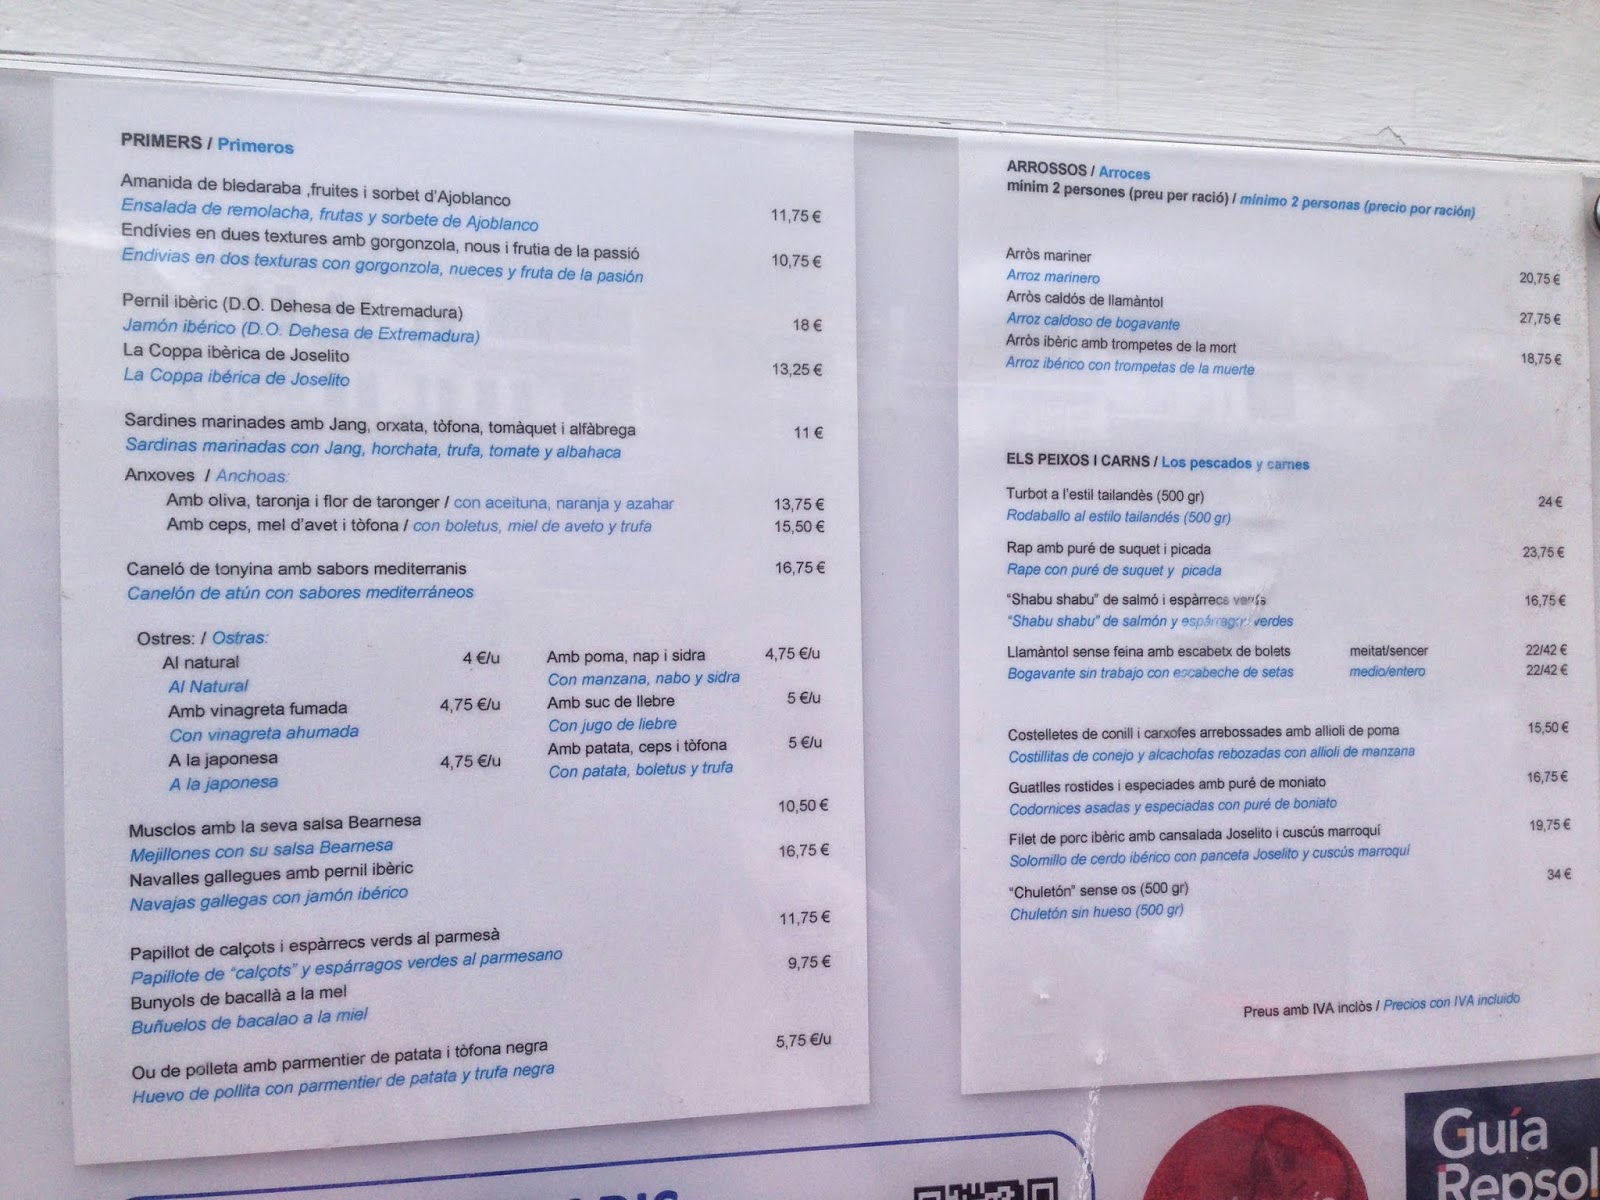 PRIMERS / Primeros
Amanida de bledaraba ,fruites i sorbet d'Ajoblanco
Ensalada de remolacha, frutas y sorbete de Ajoblanco 11,75 €
Endívies en dues textures amb gorgonzola, nous i frutia de la passió
Endivias en dos texturas con gorgonzola, nueces y fruta de la pasión 10,75 €
Pernil ibèric (D.O. Dehesa de Extremadura)
Jamón ibérico (D.O. Dehesa de Extremadura) 18 €
La Coppa ibèrica de Joselito
La Coppa ibérica de Joselito 13,25 €
Sardines marinades amb Jang, orxata, tòfona, tomàquet i alfàbrega 11 €
Sardinas marinadas con Jang, horchata, trufa, tomate y albahaca
Anxoves / Anchoas:
Amb oliva, taronja i flor de taronger / con aceituna, naranja y azahar 13,75 €
Amb ceps, mel d'avet i tòfona / con boletus, miel de aveto y trufa 15,50 €
Caneló de tonyina amb sabors mediterranis 16,75 €
Canelón de atún con sabores mediterráneos
Ostres: / Ostras:
Al natural 4 €/u
Al Natural
Amb vinagreta fumada 4,75 €/u
Con vinagreta ahumada
A la japonesa 4,75 €/u
A la japonesa
Amb poma, nap i sidra 4,75 €/u
Con manzana, nabo y sidra
Amb suc de llebre 5 €/u
Con jugo de liebre
Amb patata, ceps i tòfona 5 €/u
Con patata, boletus y trufa
Musclos amb la seva salsa Bearnesa 10,50 €
Mejillones con su salsa Bearnesa
Navalles gallegues amb pernil ibèric 16,75 €
Navajas gallegas con jamón ibérico
Papillot de calçots i espàrrecs verds al parmesà 11,75 €
Papillote de "calçots" y espárragos verdes al parmesano
Bunyols de bacallà a la mel 9,75 €
Buñuelos de bacalao a la miel
Ou de polleta amb parmentier de patata i tòfona negra 5,75 €/u
Huevo de pollita con parmentier de patata y trufa negra
ARROSSOS / Arroces
mínim 2 persones (preu per ració) / mínimo 2 personas (precio por ración)
Arròs mariner
Arroz marinero 20,75 €
Arròs caldós de llamàntol
Arroz caldoso de bogavante 27,75 €
Arròs ibèric amb trompetes de la mort
Arroz ibérico con trompetas de la muerte 18,75 €
ELS PEIXOS I CARNS / Los pescados y carnes
Turbot a l'estil tailandès (500 gr) 24 €
Rodaballo al estilo tailandés (500 gr)
Rap amb puré de suquet i picada 23,75 €
Rape con puré de suquet y picada
"Shabu shabu" de salmó i espàrrecs verds 16,75 €
"Shabu shabu" de salmón y espárragos verdes
Llamàntol sense feina amb escabetx de bolets meitat/sencer 22/42 €
Bogavante sin trabajo con escabeche de setas medio/entero 22/42 €
Costelletes de conill i carxofes arrebossades amb allioli de poma 15,50 €
Costillitas de conejo y alcachofas rebozadas con allioli de manzana
Guatlles rostides i especiades amb puré de moniato 16,75 €
Codornices asadas y especiadas con puré de boniato
Filet de porc ibèric amb cansalada Joselito i cuscús marroquí 19,75 €
Solomillo de cerdo ibérico con panceta Joselito y cuscús marroquí
"Chuletón" sense os (500 gr) 34 €
Chuletón sin hueso (500 gr)
Preus amb IVA inclòs / Precios con IVA incluido
Guía
Repsol